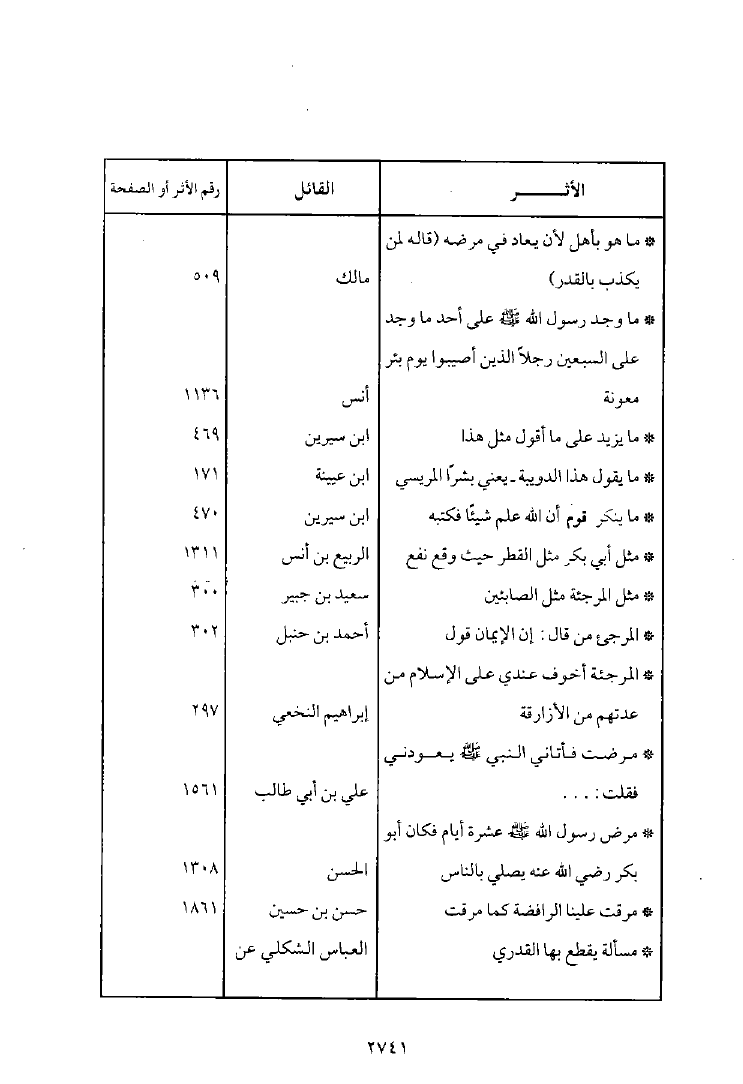 الأثـــــــر القائل رقم الأثر أو الصفحة
* ما هو بأهل لأن يعاد في مرضه (قاله لمن
يكذب بالقدر) مالك ٥٠٩
* ما وجد رسول الله ﷺ على أحد ما وجد
على السبعين رجلاً الذين أصيبوا يوم بئر
معونة أنس ١١٣٦
* ما يزيد على ما أقول مثل هذا ابن سيرين ٤٦٩
* ما يقول هذا الدويبة ـ يعني بشرًا المريسي ابن عيينة ١٧١
* ما ينكر قوم أن الله علم شيئًا فكتبه ابن سيرين ٤٧٠
* مثل أبي بكر مثل القطر حيث وقع نفع الربيع بن أنس ١٣١١
* مثل المرجئة مثل الصابئين سعيد بن جبير ٣٠٠
* المرجئ من قال: إن الإيمان قول أحمد بن حنبل ٣٠٢
* المرجئة أخوف عندي على الإسلام من
عدتهم من الأزارقة إبراهيم النخعي ٢٩٧
* مرضت فأتاني النبي ﷺ يعودني
فقلت: . . . علي بن أبي طالب ١٥٦١
* مرض رسول الله ﷺ عشرة أيام فكان أبو
بكر رضي الله عنه يصلي بالناس الحسن ١٣٠٨
* مرقت علينا الرافضة كما مرقت حسن بن حسين ١٨٦١
* مسألة يقطع بها القدري العباس الشكلي عن
٢٧٤١